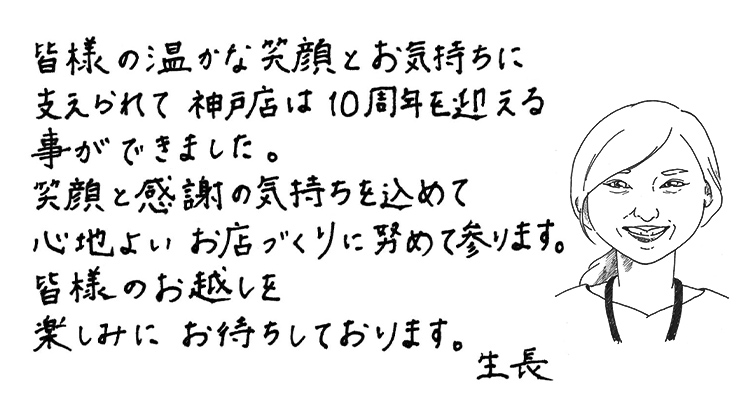 皆様の温かな笑顔とお気持ちに
支えられて 神戸店は 10周年を迎える
事ができました。
笑顔と感謝の気持ちを込めて
心地よい お店づくりに努めて参ります。
皆様のお越しを
楽しみに お待ちしております。
生長